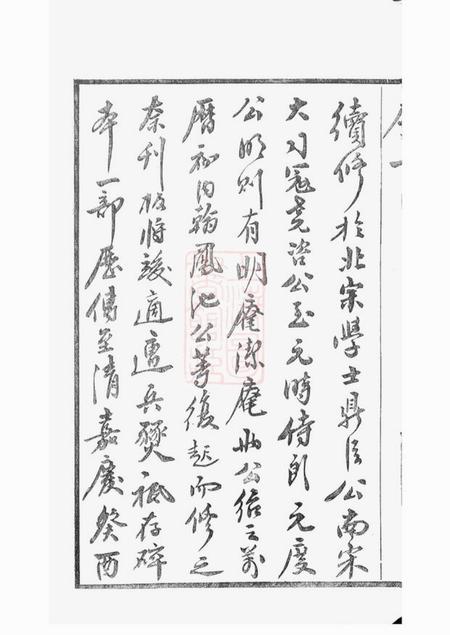 續修於北宋學士鼎臣公南宋
大司寇堯咨公至元時侍郎元度
公明則有明庵潔庵兩公繼之萬
曆初內翰鳳池公等復起而修之
奈刊板將竣適遭兵燹祗存碎
本一部歷傳至清嘉慶癸酉